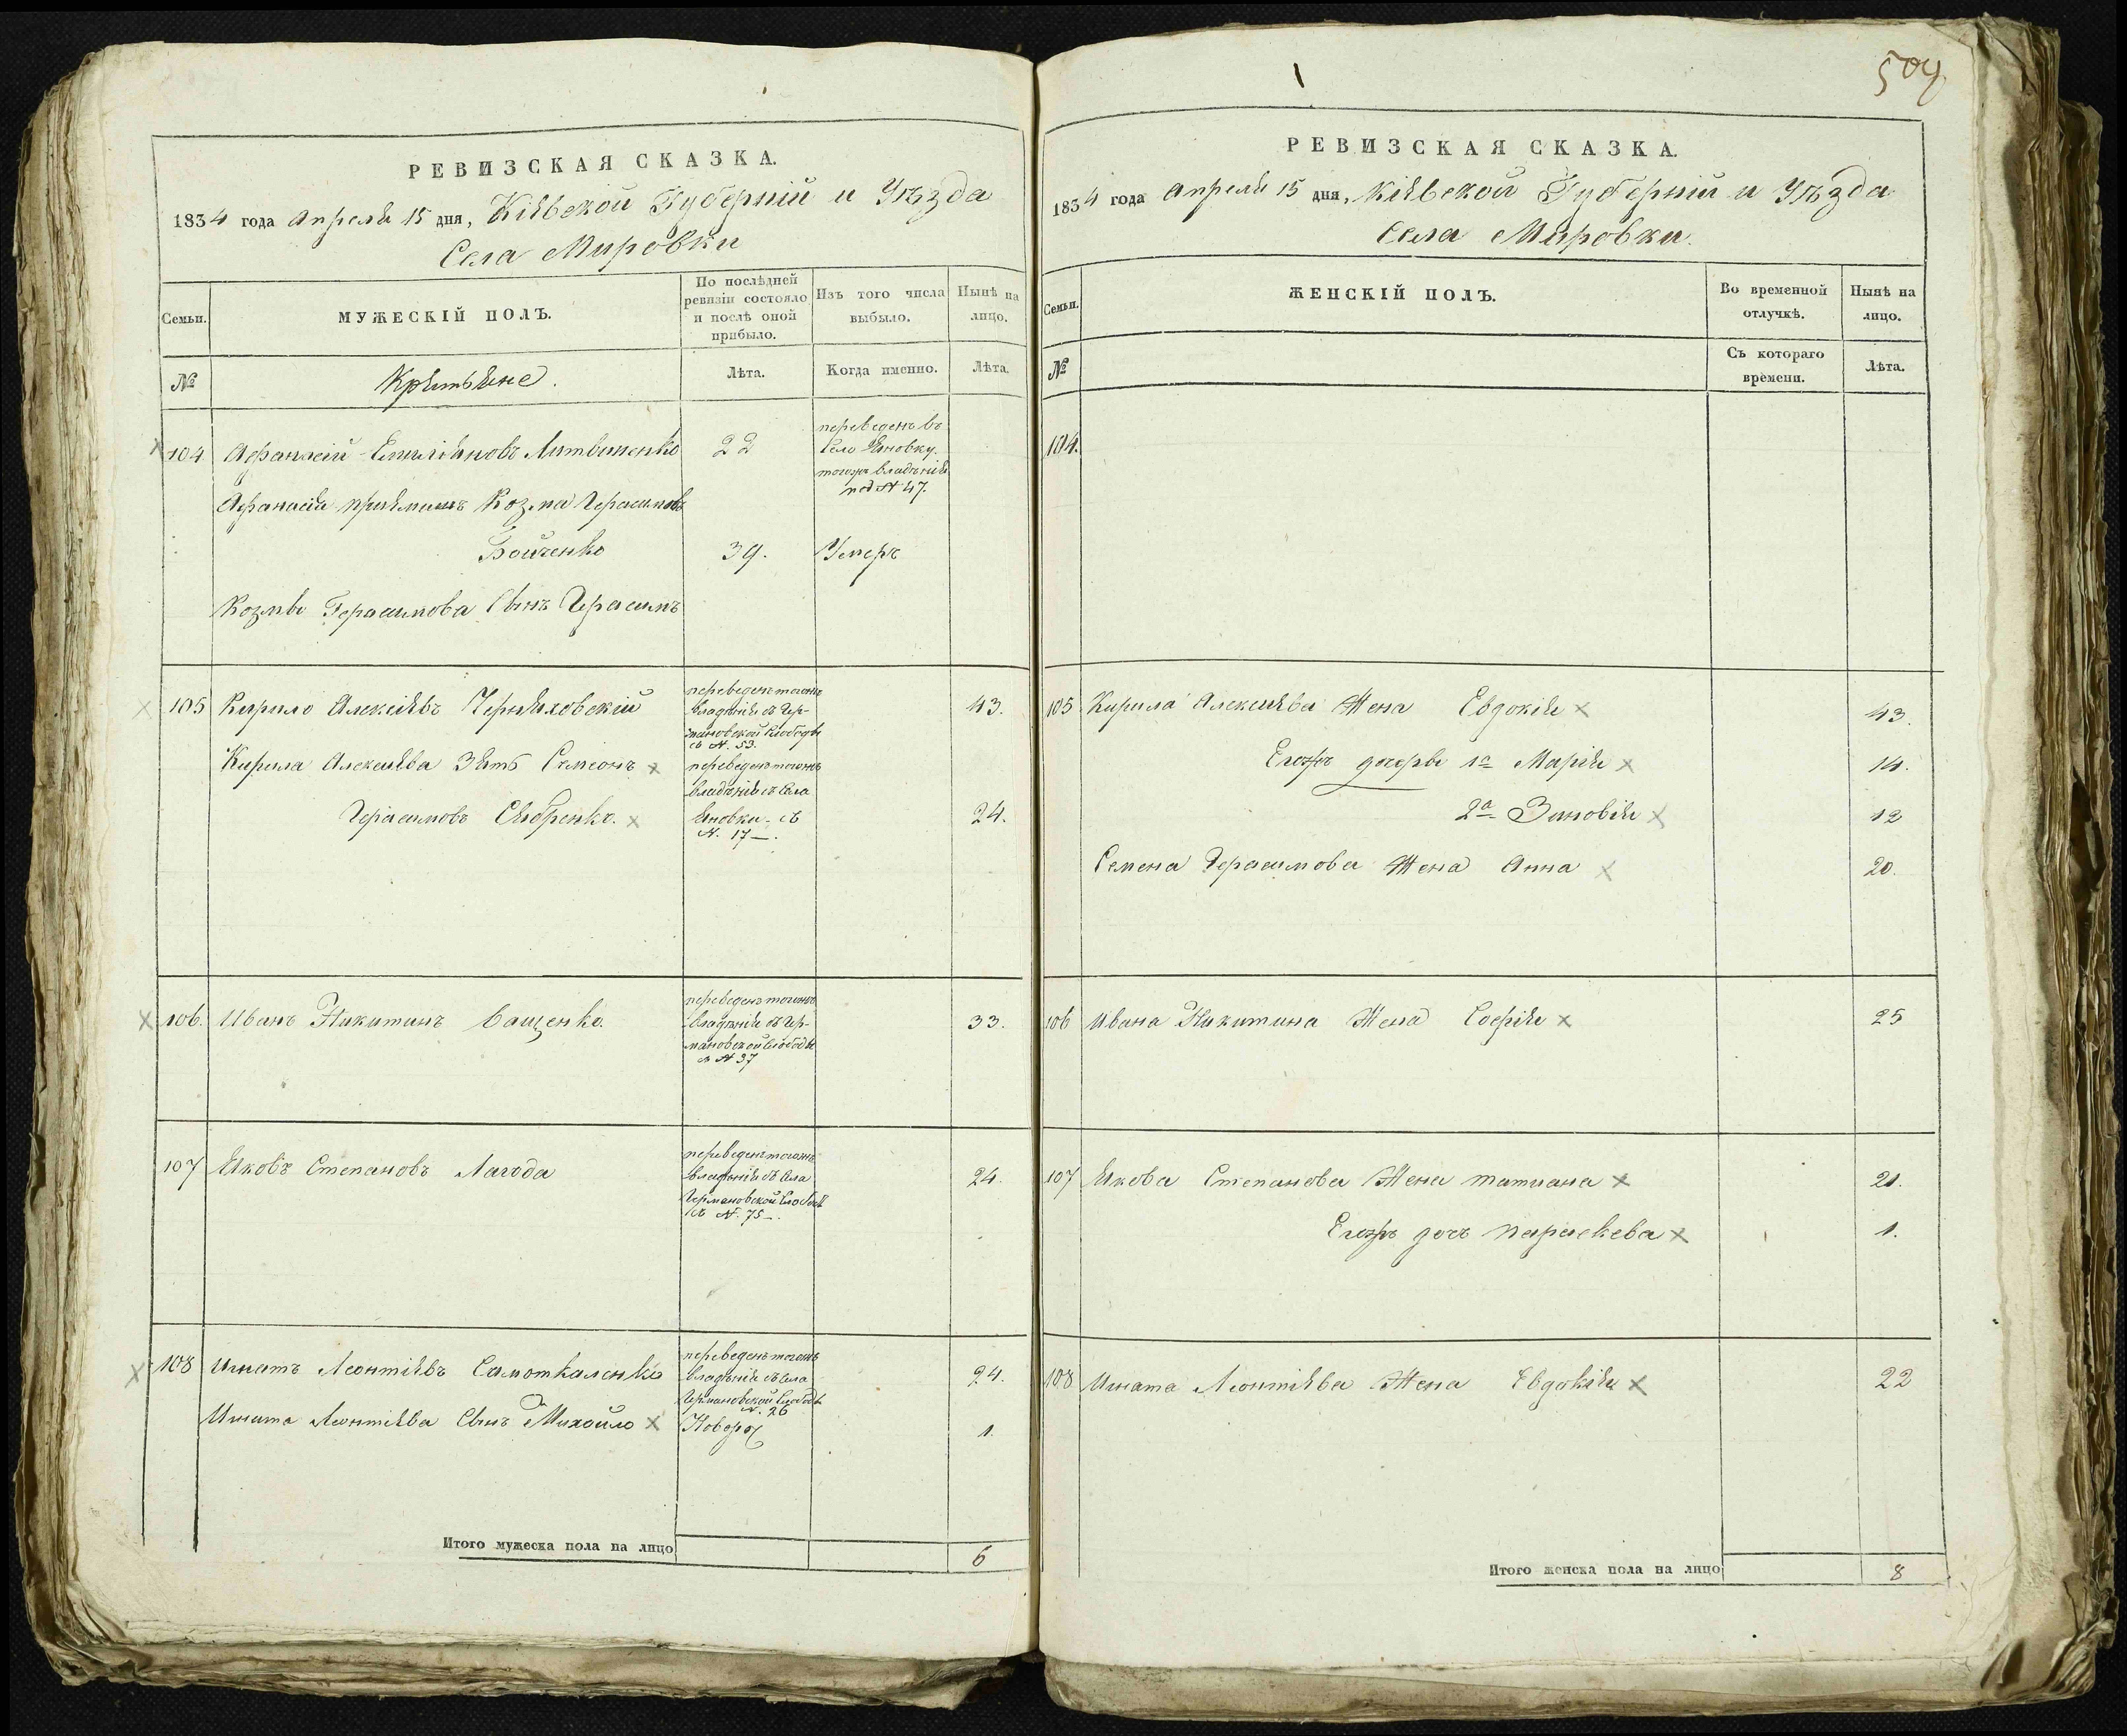 504
РЕВИЗСКАЯ СКАЗКА.
1834 года Апреля 15 дня, Кіевской Губерніи и Уѣзда
Села Мировки
Семьи.
МУЖЕСКІЙ ПОЛЪ.
По послѣдней ревизіи состояло и послѣ оной прибыло.
Изъ того числа выбыло.
Нынѣ на лицо.
№
Крѣстьяне.
Лѣта.
Когда именно.
Лѣта.
104 Афанасій Емиліяновъ Литвиненко 22 переведенъ въ
Село Яновку
тогожъ владѣнія
под N 47.
Афанасія пріемишъ Козма Герасимовъ
Бойченко 39. Умеръ
Козмы Герасимова Сынъ Герасимъ
105 Кирило Алексіевъ Черняховскій переведенъ тогожъ 43.
владѣнія съ Гер-
мановской Слободы
съ N. 53.
Кирила Алексіева Зять Семіонъ переведенъ тогожъ
владѣнія съ Села
Герасимовъ Сябренко. Яновки съ 24.
N. 17
106. Иванъ Никитинъ Ващенко. переведенъ тогожъ 33.
владѣнія съ Гер-
мановской Слободы
съ N 37
107 Яковъ Степановъ Лагода переведенъ тогожъ 24.
владѣнія съ Села
Германовской Слободы
съ N. 75
108 Игнатъ Леонтіевъ Самоткаленко переведенъ тогожъ 24.
владѣнія съ Села
Германовской Слободы
N. 26
Игната Леонтіева Сынъ Михойло Новорож 1.
Итого мужеска пола на лицо 6
РЕВИЗСКАЯ СКАЗКА.
1834 года Апреля 15 дня, Кіевской Губерніи и Уѣзда
Села Мировки.
Семьи.
ЖЕНСКІЙ ПОЛЪ.
Во временной отлучкѣ.
Нынѣ на лицо.
№
Съ котораго времени.
Лѣта.
104.
105 Кирила Алексіева Жена Евдокія 43.
Егожъ дочеры 1я Марія 14.
2я Зиновія 12
Семена Герасимова Жена Анна 20.
106 Ивана Никитина Жена Софія 25
107 Якова Степанова Жена Татиана 21.
Егожъ дочъ Параскева 1.
108 Игната Леонтіева Жена Евдокія 22
Итого женска пола на лицо 8